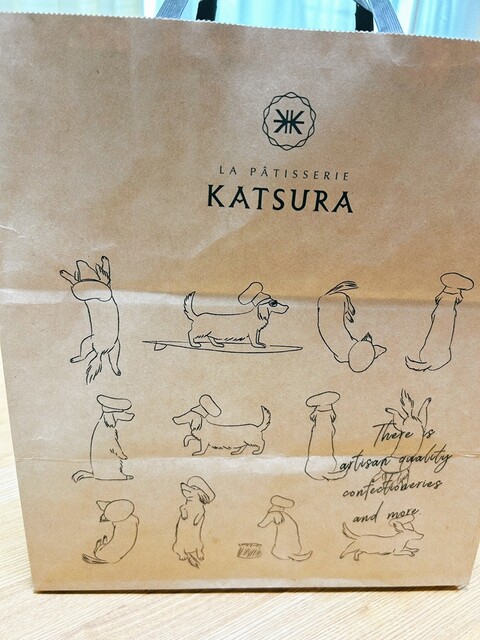 LA PÂTISSERIE
KATSURA
There is
artisan quality
confectioneries
and more.